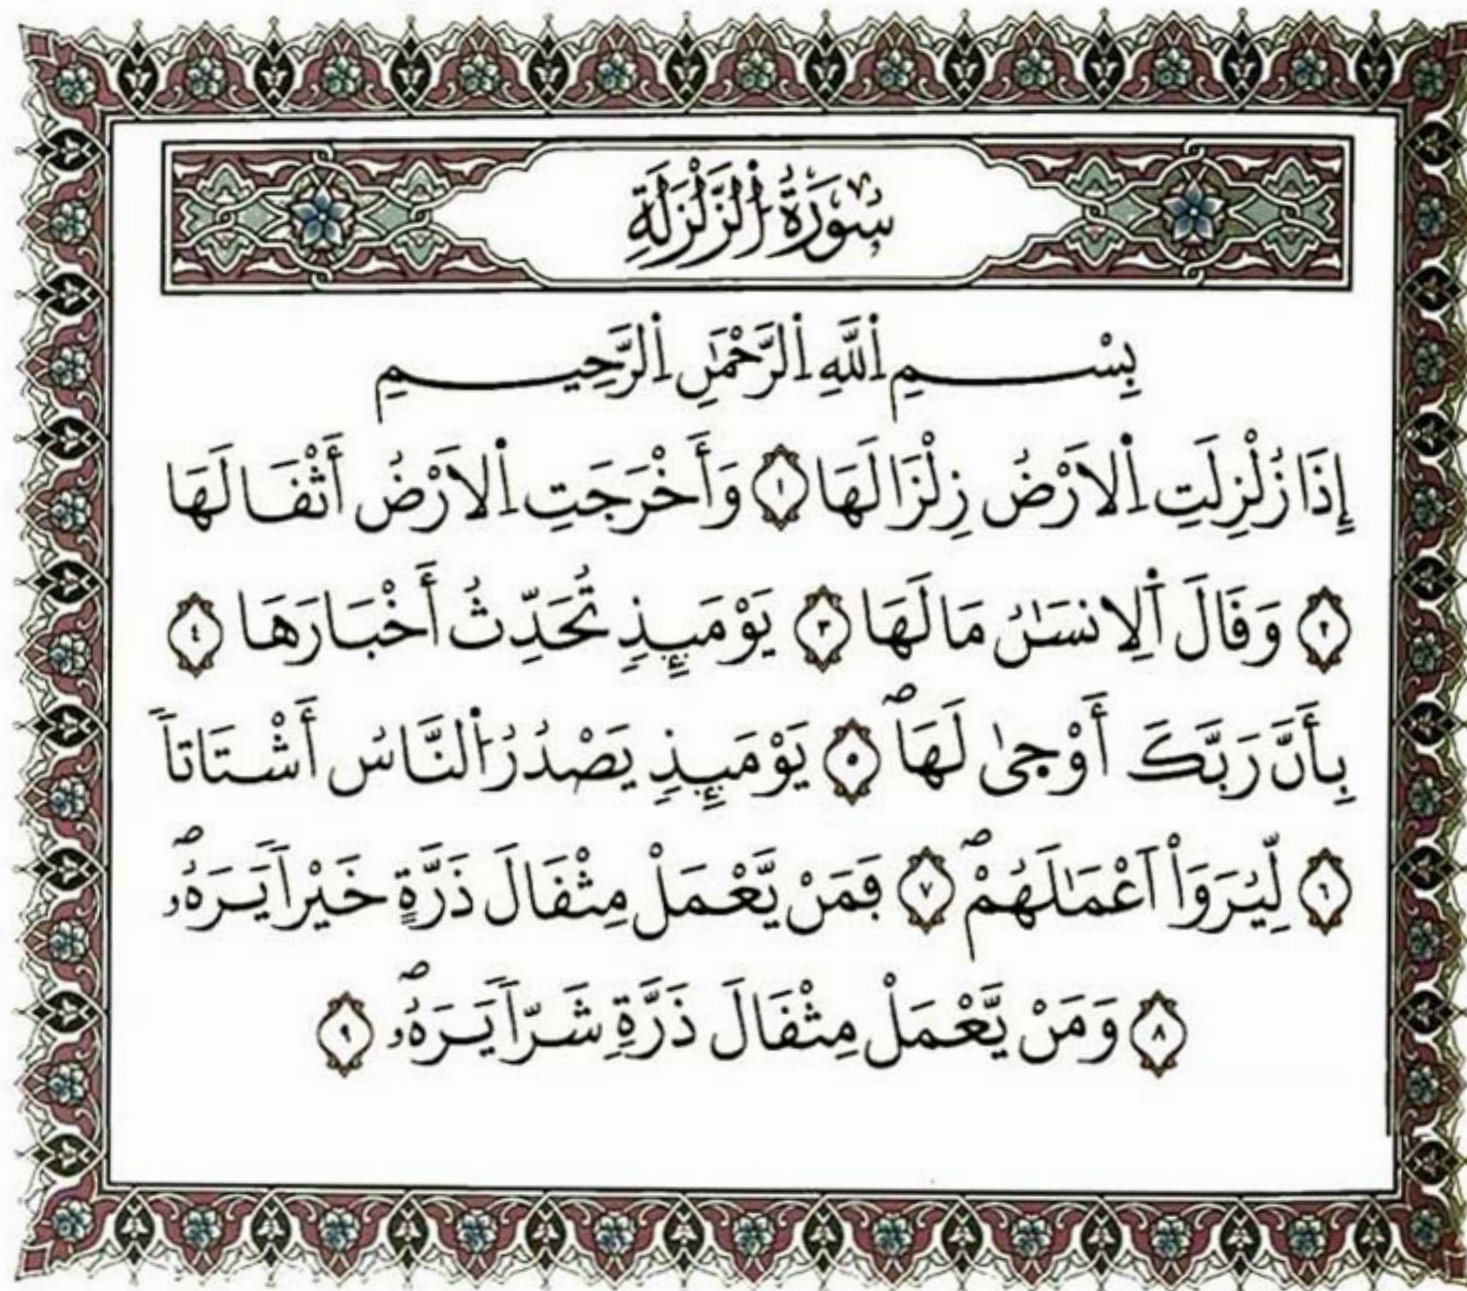 سُورَةُ اُ۬لزَّلْزَلَةِ
بِسْمِ اِ۬للَّهِ اِ۬لرَّحْمَٰنِ اِ۬لرَّحِيمِ
إِذَا زُلْزِلَتِ اِ۬لَارْضُ زِلْزَالَهَا ١ وَأَخْرَجَتِ اِ۬لَارْضُ أَثْقَالَهَا
٢ وَقَالَ اَ۬لِانسَٰنُ مَا لَهَا ٣ يَوْمَئِذٍ تُحَدِّثُ أَخْبَارَهَا ٤
بِأَنَّ رَبَّكَ أَوْح۪يٰ لَهَاۖ ٥ يَوْمَئِذٍ يَصْدُرُ اُ۬لنَّاسُ أَشْتَاتاٗ
٦ لِّيُرَوَاْ اَعْمَٰلَهُمْۖ ٧ فَمَنْ يَّعْمَلْ مِثْقَالَ ذَرَّةٍ خَيْراٗ يَرَهُۥۖ
٨ وَمَنْ يَّعْمَلْ مِثْقَالَ ذَرَّةٖ شَرّاٗ يَرَهُۥۖ ٩